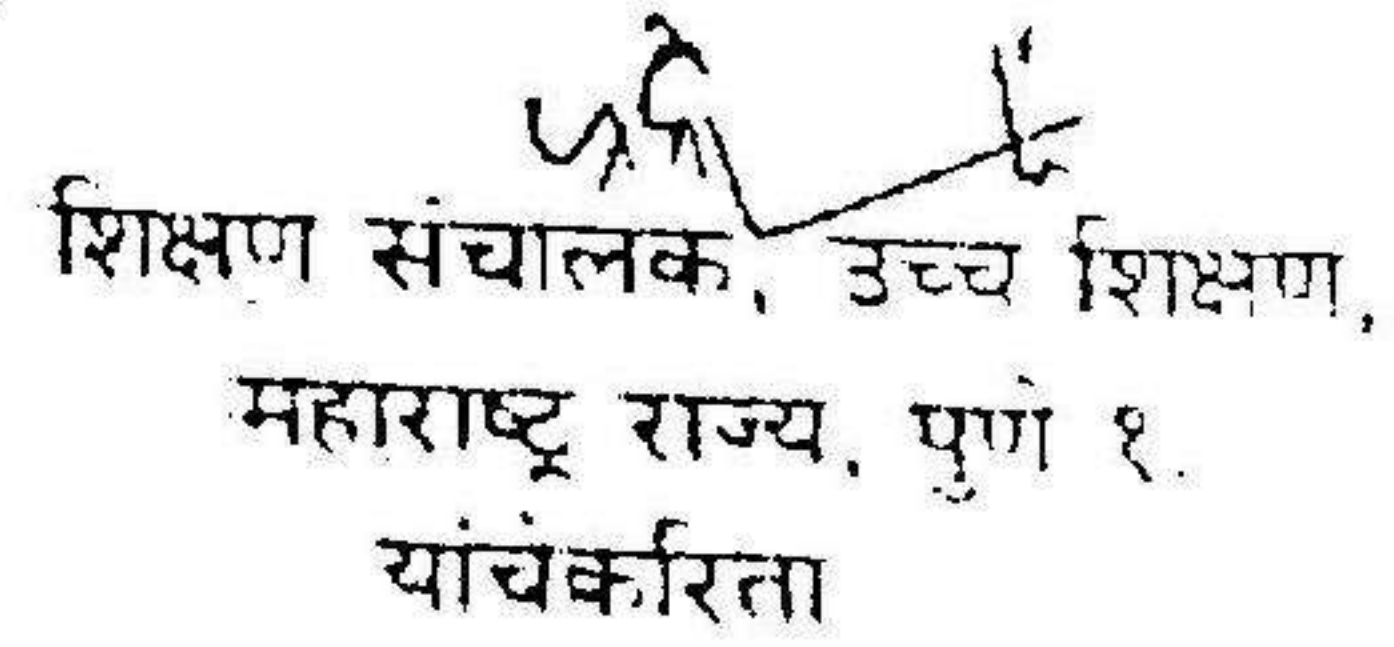 शिक्षण संचालक, उच्च शिक्षण,
महाराष्ट्र राज्य, पुणे १.
यांचेकरिता